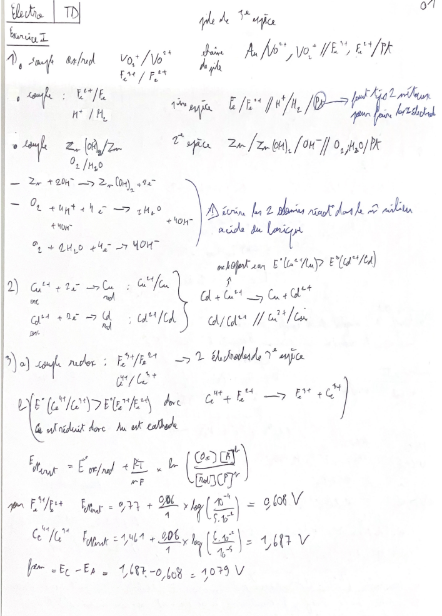 Electro TD
01
pile de 3e espèce
Exercice I
1) . couple ox/red VO2+/VO2+ chaîne de pile Au/VO2+, VO2+ // Fe3+, Fe2+/Pt
Fe3+/Fe2+
. couple : Fe2+/Fe 1ère espèce Fe/Fe2+ // H+/H2/Pt → faut tjs 2 métaux
H+/H2 pour faire les électrod
. couple Zn(OH)2/Zn 2e espèce Zn/Zn(OH)2/OH- // O2, H2O/Pt
O2/H2O
- Zn + 2OH- → Zn(OH)2 + 2e-
- O2 + 4H+ + 4e- → 2H2O
+4OH- +4OH-
O2 + 2H2O + 4e- → 4OH-
⚠ écrire les 2 réact dans le m̂ milieu
acide ou basique
E°(Cu2+/Cu) > E°(Cd2+/Cd)
2) Cu2+ + 2e- → Cu : Cu2+/Cu
ox red
Cd2+ + 2e- → Cd : Cd2+/Cd
ox red
Cd + Cu2+ → Cu + Cd2+
Cd/Cd2+ // Cu2+/Cu
3) a) couple redox : Fe3+/Fe2+ → 2 Electrodes de 3e espèce
Ce4+/Ce3+
b) E°(Ce4+/Ce3+) > E°(Fe3+/Fe2+) donc Ce4+ + Fe2+ → Fe3+ + Ce3+
Ce est réduit donc est cathode
E Nernst = E°ox/red + RT/nF × ln ([Ox][A]/[Red][P])
pour Fe3+/Fe2+ E Nernst = 0,77 + 0,06/1 × log(10-4/5.10-2) = 0,608 V
Ce4+/Ce3+ E Nernst = 1,461 + 0,06/1 × log( /10-4) = 1,687 V
fem = EC - EA = 1,687 - 0,608 = 1,079 V